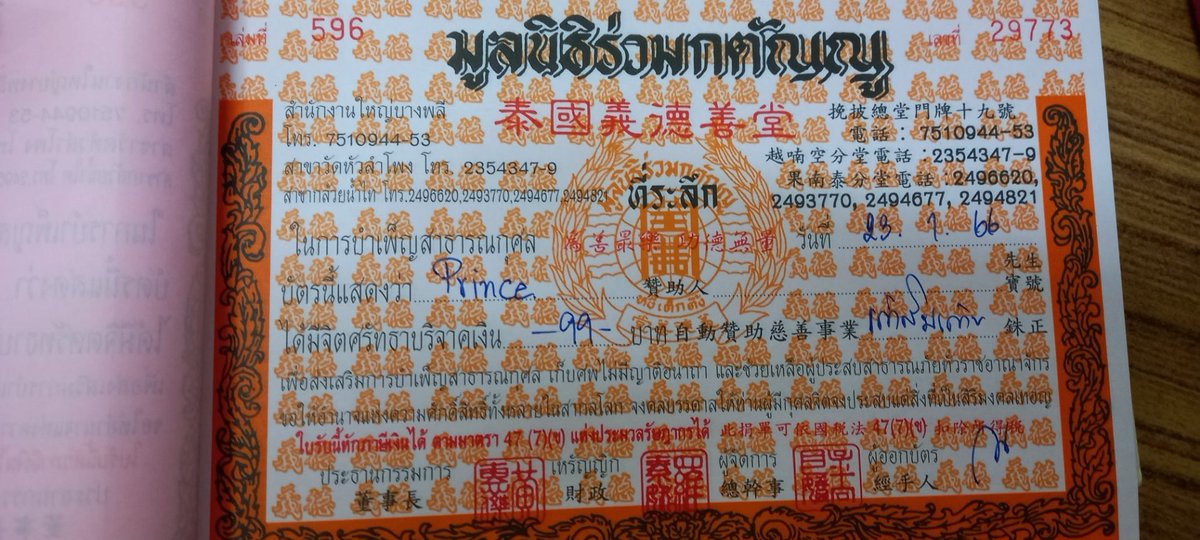 เล่มที่ 596 เลขที่ 29773
มูลนิธิร่วมกตัญญู
泰國義德善堂
สำนักงานใหญ่บางพลี
โทร. 7510944-53
สาขาวัดหัวลำโพง โทร. 2354347-9
สาขากล้วยน้ำไท โทร.2496620,2493770,2494677,2494821
挽披總堂門牌十九號
電話：7510944-53
越喃空分堂電話：2354347-9
果南泰分堂電話：2496620,
2493770, 2494677, 2494821
ที่ระลึก
ในการบำเพ็ญสาธารณกุศล 為善最樂 功德無量 วันที่ 23. 66
บัตรนี้แสดงว่า Prince 贊助人 先生 寶號
ได้มีจิตศรัทธาบริจาคเงิน -99- บาท 自動贊助慈善事業 銖正
เพื่อส่งเสริมการบำเพ็ญสาธารณกุศล เก็บศพไม่มีญาติอนาถา และช่วยเหลือผู้ประสบสาธารณภัยทั่วราชอาณาจักร
ขอให้อำนาจแห่งความศักดิ์สิทธิ์ทั้งหลายในสากลโลก จงดลบรรดาลให้ท่านผู้มีกุศลจิตจงประสบแต่สิ่งที่เป็นสิริมงคลเทอญ
ใบรับนี้หักภาษีเงินได้ ตามมาตรา 47 (7)(ข) แห่งประมวลรัษฎากรได้ 此捐單可依國稅法 47(7)(ข) 扣除所得稅
ประธานกรรมการ เหรัญญิก ผู้จัดการ ผู้ออกบัตร
董事長 財政 總幹事 經手人